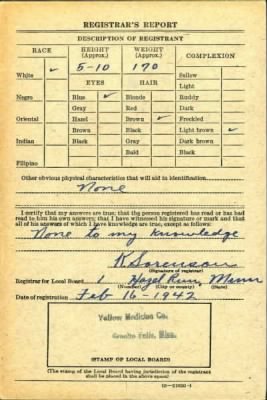 REGISTRAR'S REPORT
DESCRIPTION OF REGISTRANT
RACE HEIGHT (Approx.) WEIGHT (Approx.) COMPLEXION
White ✓ 5-10 170 Sallow
EYES HAIR Light
Negro Blue ✓ Blonde Ruddy
Gray Red Dark
Oriental Hazel Brown ✓ Freckled
Brown Black Light brown ✓
Indian Black Gray Dark brown
Bald Black
Filipino
Other obvious physical characteristics that will aid in identification
None
I certify that my answers are true; that the person registered has read or has had
read to him his own answers; that I have witnessed his signature or mark and that
all of his answers of which I have knowledge are true, except as follows:
None to my knowledge
K Sorenson
(Signature of registrar)
Registrar for Local Board 1 Hazel Run, Minn
(Number) (City or county) (State)
Date of registration Feb 16-1942
Yellow Medicine Co.
Granite Falls, Minn.
(STAMP OF LOCAL BOARD)
(The stamp of the Local Board having jurisdiction of the registrant
shall be placed in the above space)